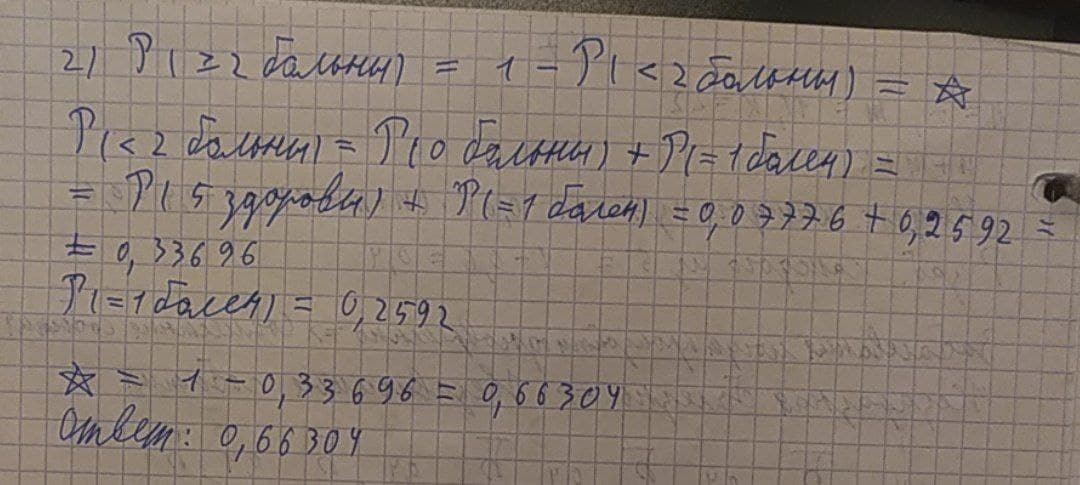 2) P(≥2 больны) = 1 - P(<2 больны) = ☆
P(<2 больны) = P(0 больны) + P(=1 болен) =
= P(5 здоровы) + P(=1 болен) = 0,07776 + 0,2592 =
= 0,33696
P(=1 болен) = 0,2592
☆ = 1 - 0,33696 = 0,66304
Ответ: 0,66304